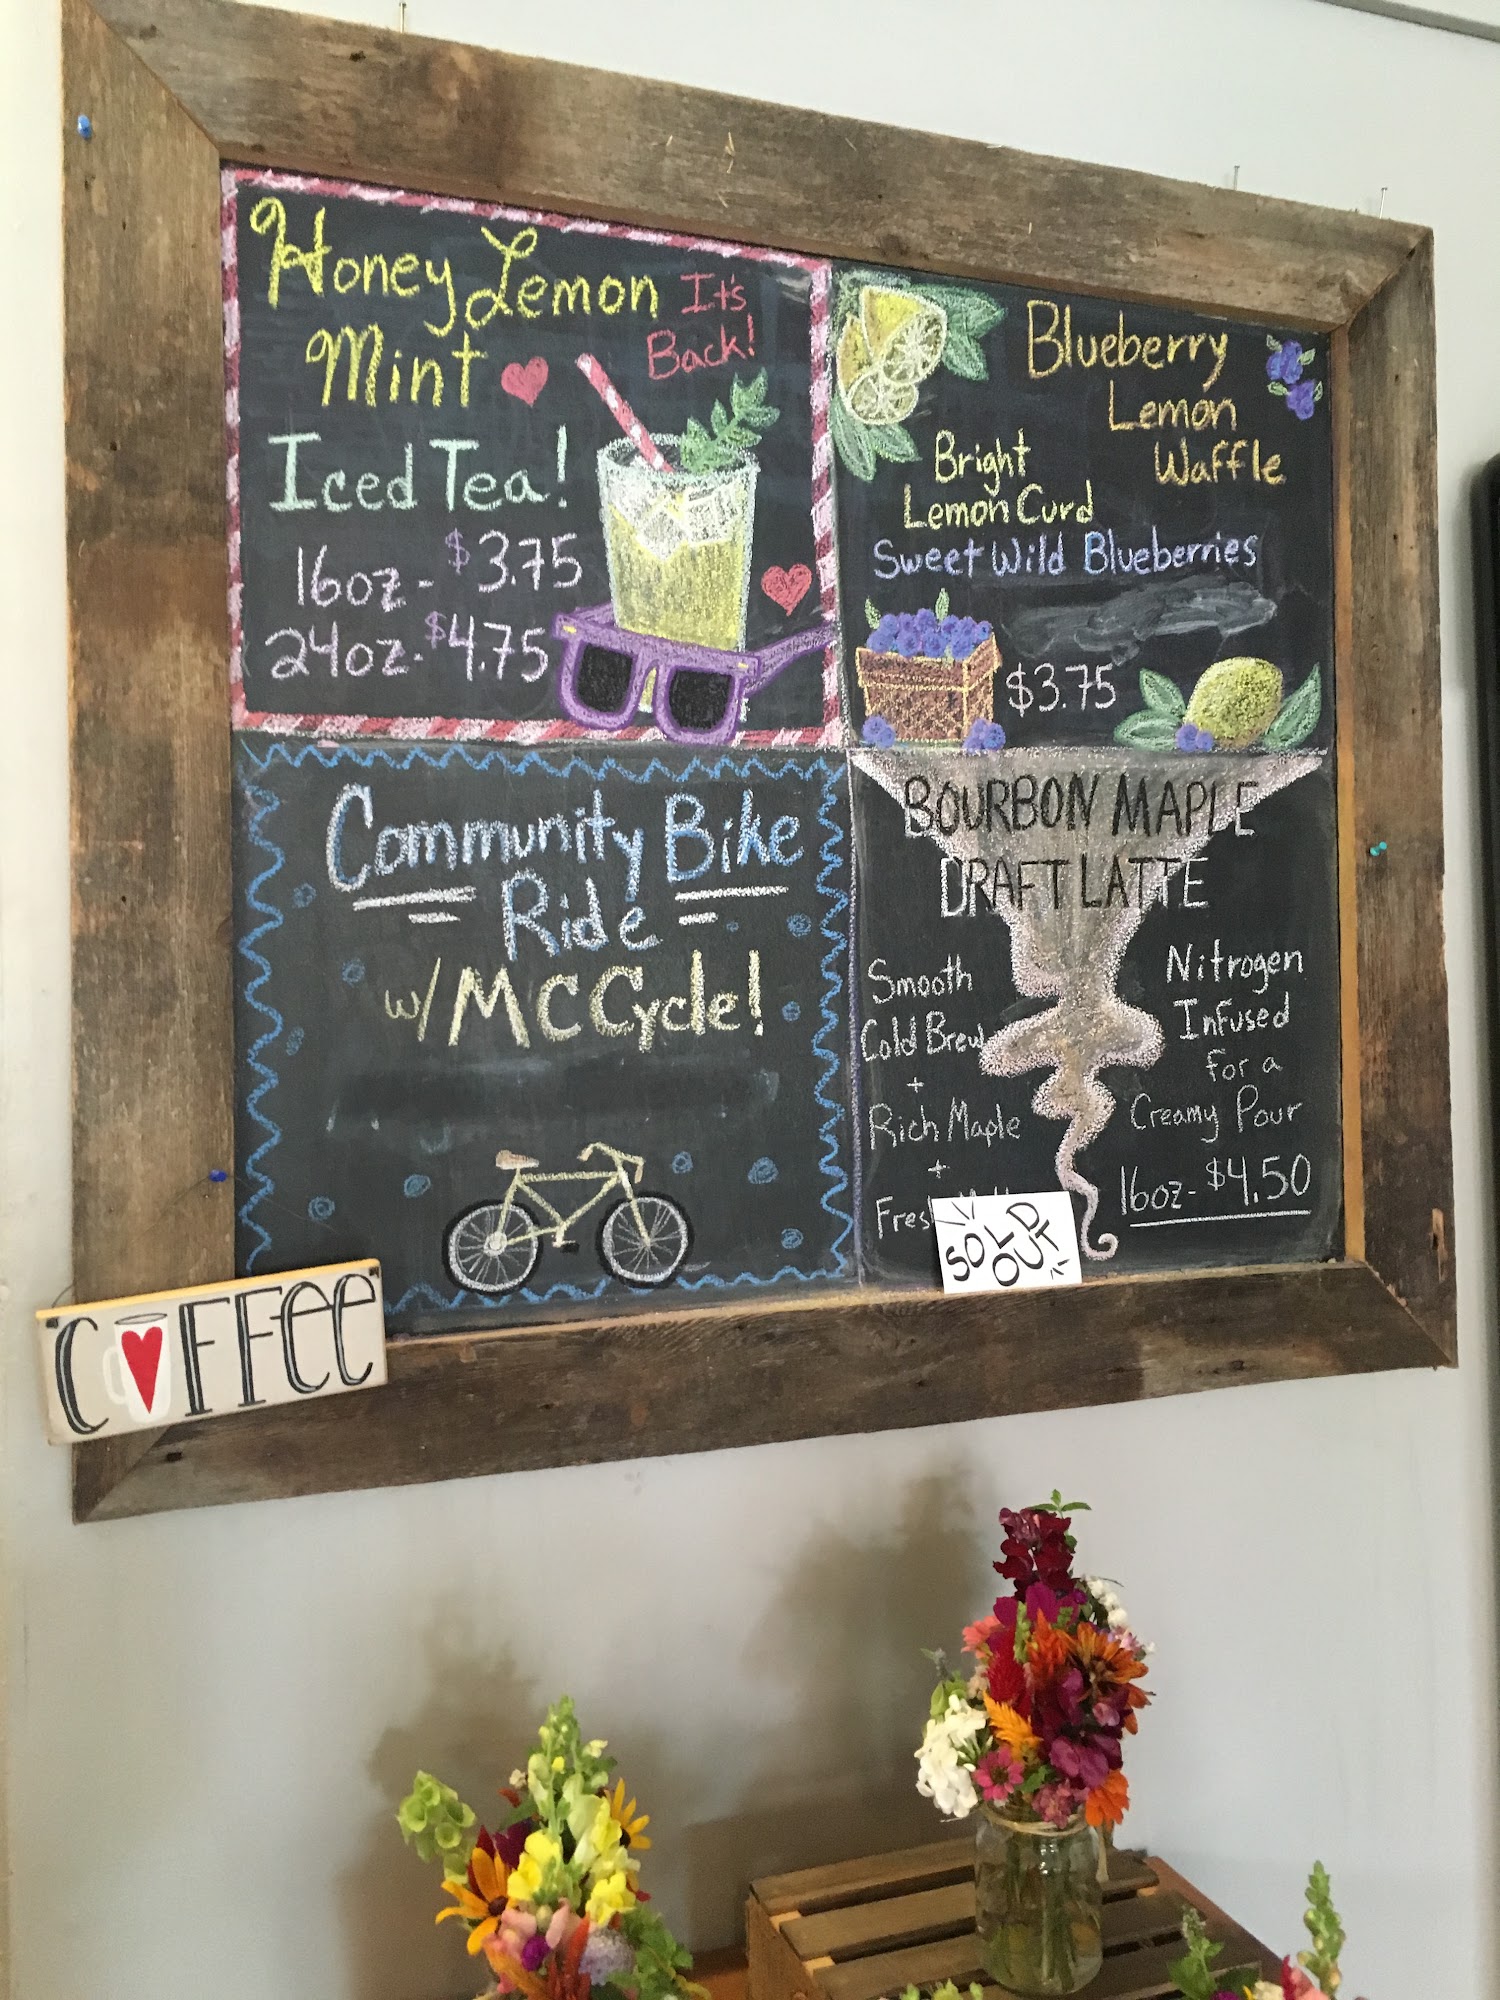 Honey Lemon
Mint
It's
Back!
Iced Tea!
16oz - $3.75
24oz - $4.75
Blueberry
Lemon
Waffle
Bright
Lemon Curd
Sweet Wild Blueberries
$3.75
Community Bike
Ride
w/ MCCycle!
BOURBON MAPLE
DRAFT LATTE
Smooth
Cold Brew
+
Rich Maple
+
Nitrogen
Infused
for a
Creamy Pour
16oz - $4.50
SOLD
OUT
COFFEE